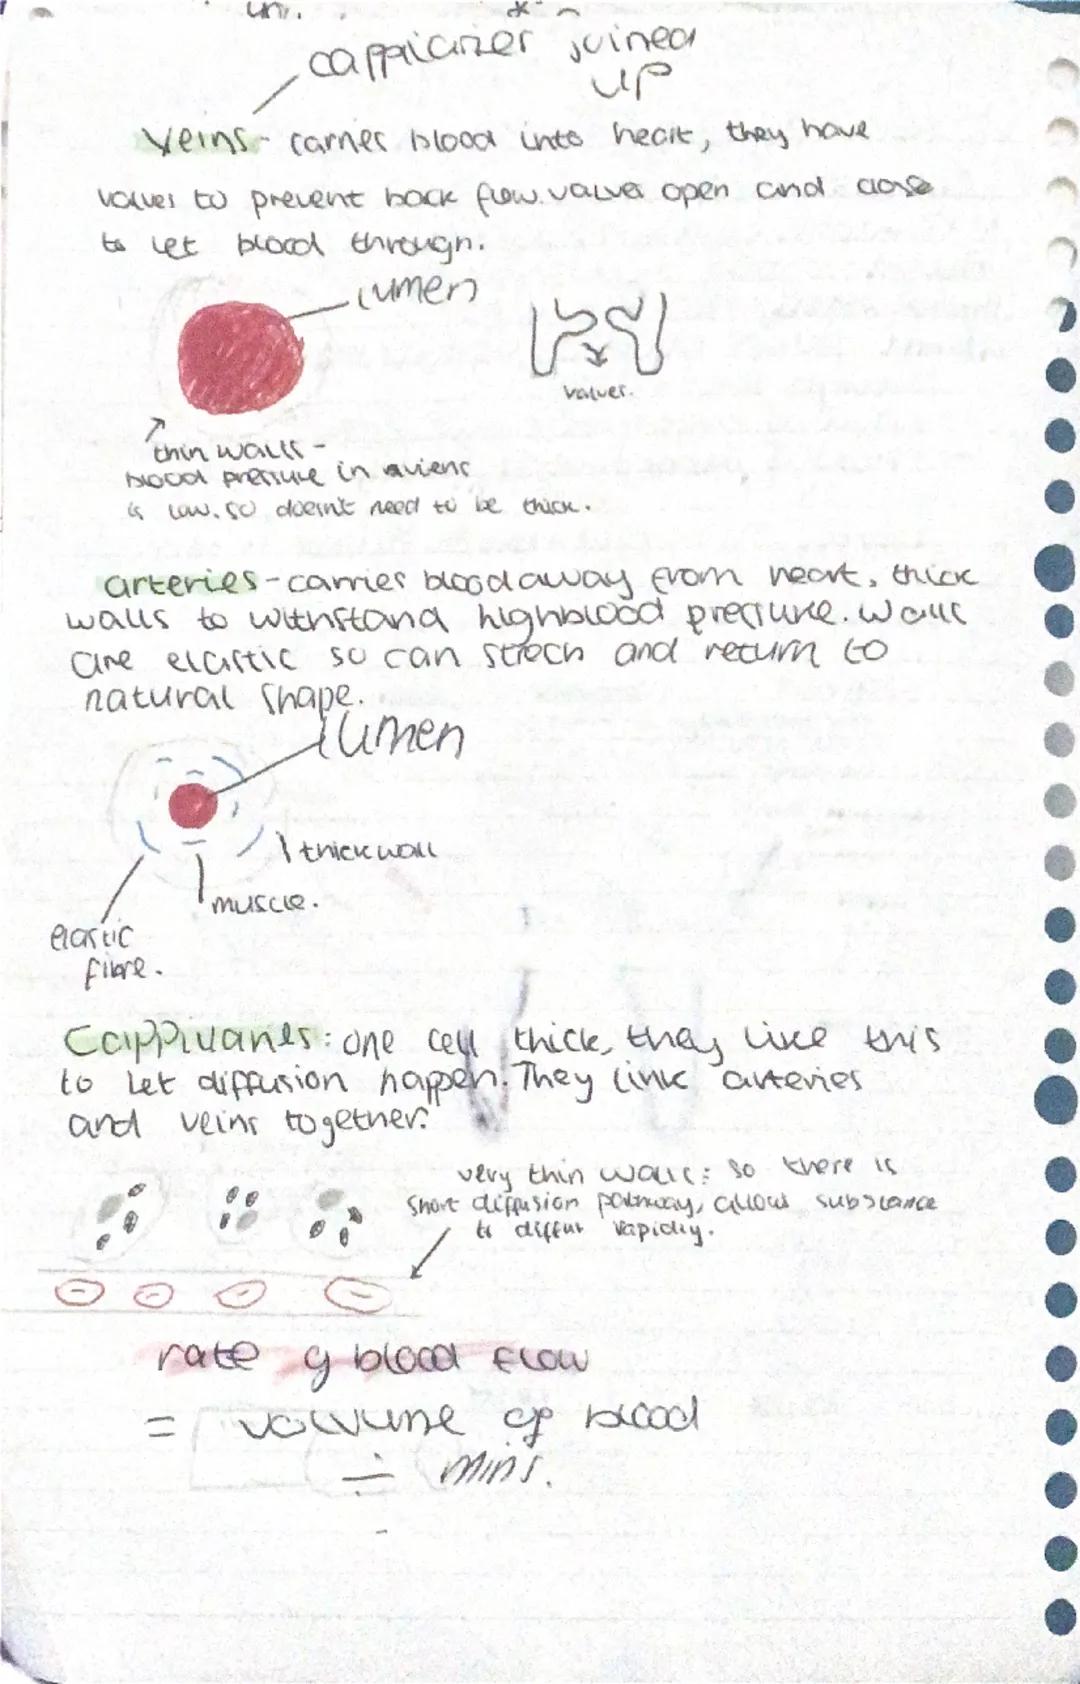 cappilarier joined
up
Veins - carries blood into heart, they have
valves to prevent back flow. valves open and close
to let blood through.
lumen
valves.
thin walls -
blood pressure in viens
is low. so doesn't need to be thick.
arteries - carries blood away from heart, thick
walls to withstand high blood pressure. walls
are elastic so can strech and return to
natural shape.
lumen
thick wall
muscle.
elastic
fibre.
Cappilaries: one cell thick, they like this
to let diffusion happen. They link arteries
and veins together.
very thin walls: so there is
short diffusion pathway, allows substance
to diffus rapidly.
rate of blood flow
= volume of blood
÷ mins.